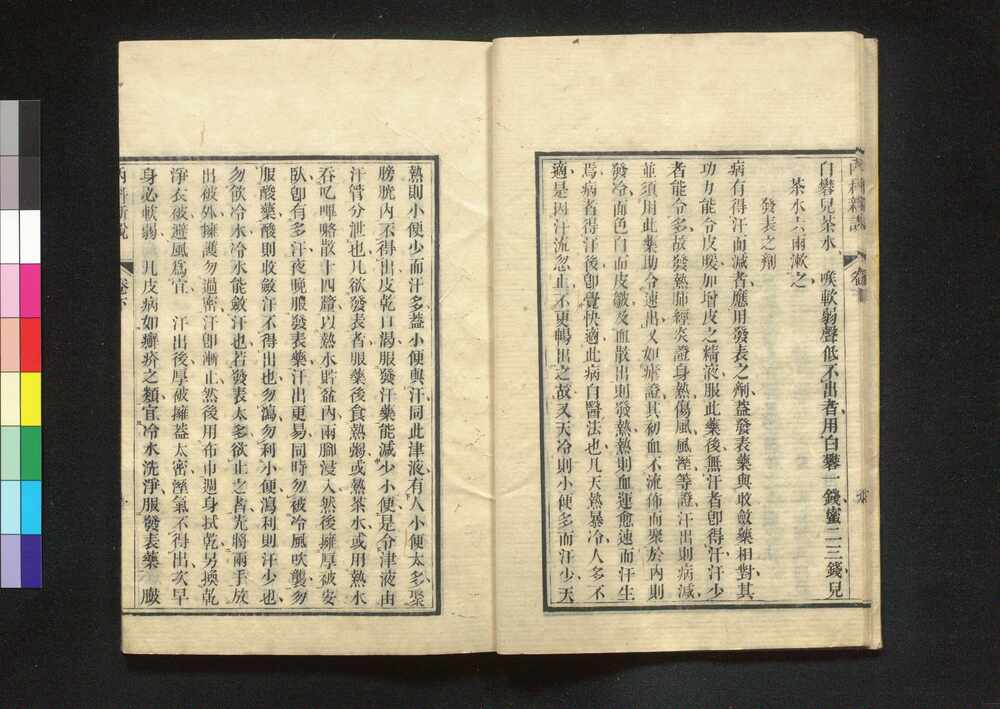 白礬兒茶水 喉軟弱聲低不出者用白礬一錢蜜二三錢兒
茶水六兩漱之
發表之劑
病有得汗而減者應用發表之劑蓋發表藥與收斂藥相對其
功力能令皮暖加增皮之精液服此藥後無汗者卽得汗汗少
者能令多故發熱肺經炎證身熱傷風風溼等證汗出則病減
並須用此藥助令速出又如瘧證其初血不流佈而聚於內則
發冷面色白而皮皺及血散出則發熱熱則血運愈速而汗生
焉病者得汗後卽覺快適此病自醫法也凡天熱暴冷人多不
適是因汗流忽止不更暢出之故又天冷則小便多而汗少天
熱則小便少而汗多蓋小便與汗同此津液有人小便太多聚
膀胱內不得出皮乾口渴服發汗藥能減少小便是令津液由
汗管分泄也凡欲發表者服藥後食熱粥或熱茶水或用熱水
吞叱嗶格散十四釐以熱水貯盆內兩腳浸入然後擁厚被安
臥卽有多汗夜晩服發表藥汗出更易同時勿被冷風吹襲勿
服酸藥酸則收斂汗不得出也勿瀉勿利小便瀉利則汗少也
勿飲冷水冷水能斂汗也若發表太多欲止之者先將兩手放
出被外擁護勿過密汗卽漸止然後用布巾週身拭乾另換乾
淨衣被避風爲宜 汗出後厚被擁蓋太密溼氣不得出次早
身必軟弱 凡皮病如癬疥之類宜冷水洗淨服發表藥 服
內科新說 卷下